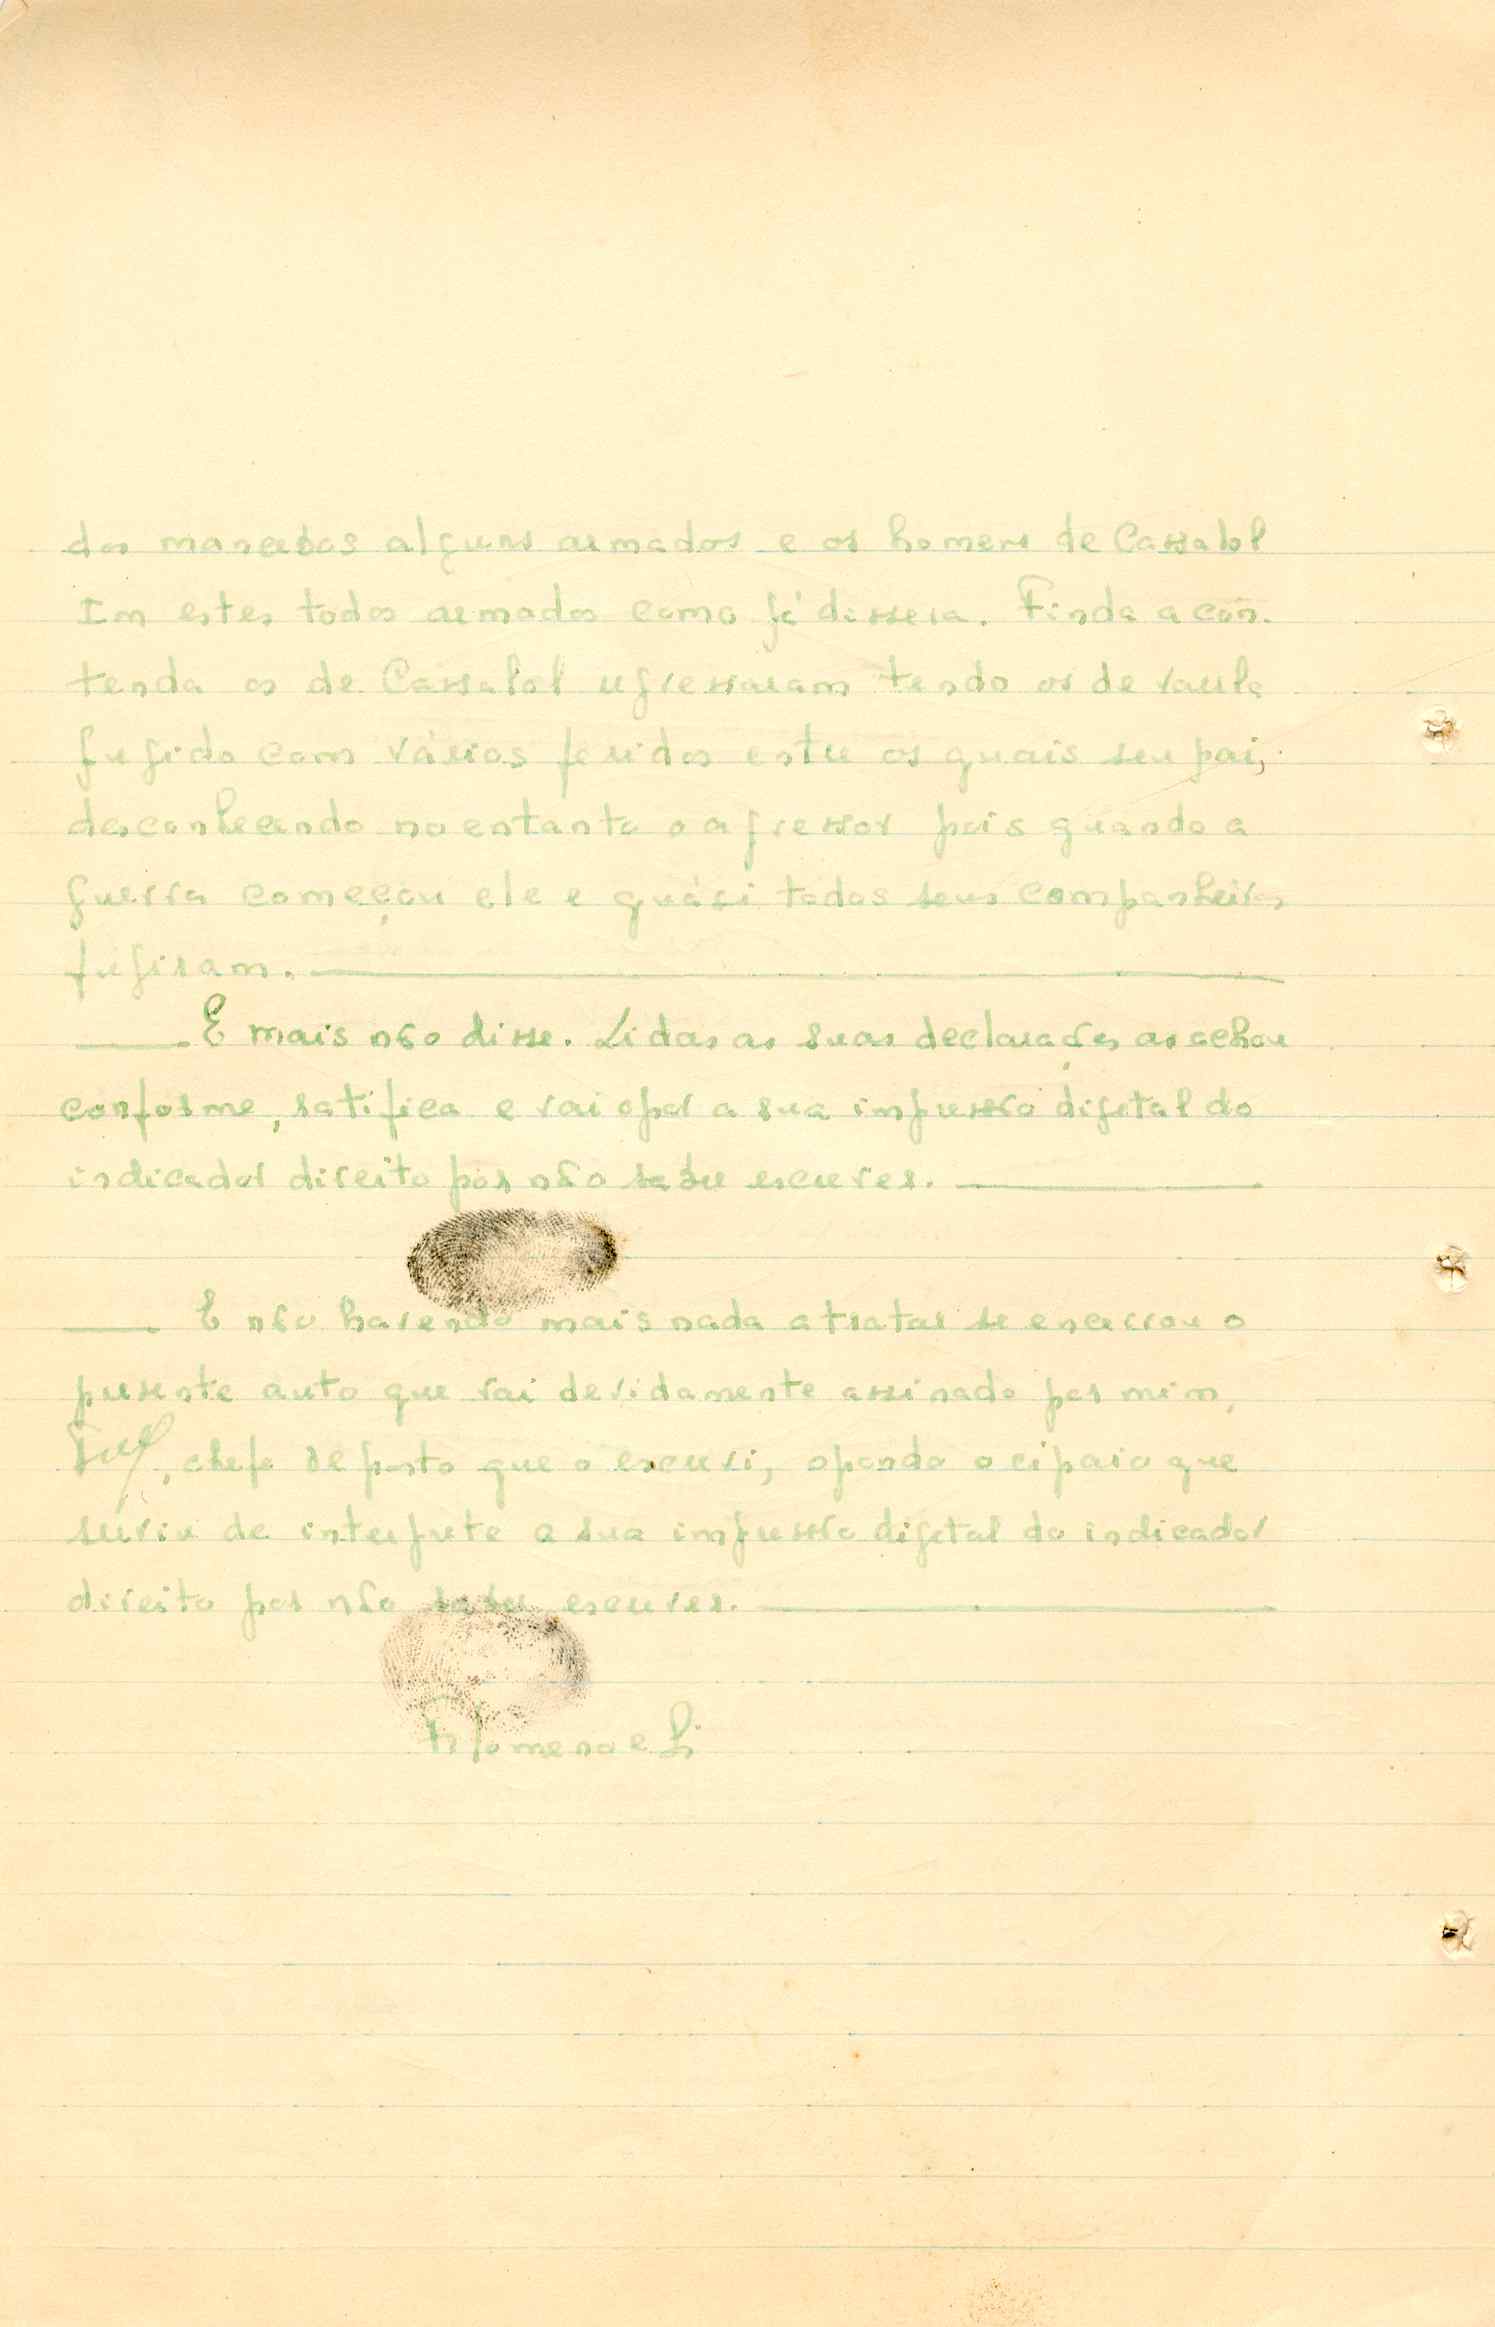 dos mancebos alguns armados e os homens de Cassalol
Im estes todos armados como já dissera. Finda a con-
tenda os de Cassalol regressaram tendo os de
fugido com vários feridos entre os quais seu pai,
desconhecendo no entanto o agressor pois quando a
guerra começou ele e quási todos seus companheiros
fugiram.
E mais não disse. Lidas as suas declarações as achou
conforme, ratifica e vai opor a sua impressão digital do
indicador direito por não saber escrever.
E não havendo mais nada a tratar se encerrou o
presente auto que vai devidamente assinado por mim,
, chefe de posto que o escrevi, opondo o cipaio que
serviu de interprete a sua impressão digital do indicador
direito por não saber escrever.